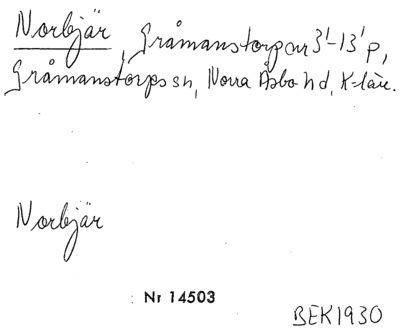 Norbjär, Gråmanstorp nr 3¹-13¹ p,
Gråmanstorps sn, Norra Åsbo hd, K-län.
Norbjär
Nr 14503
BEK1930